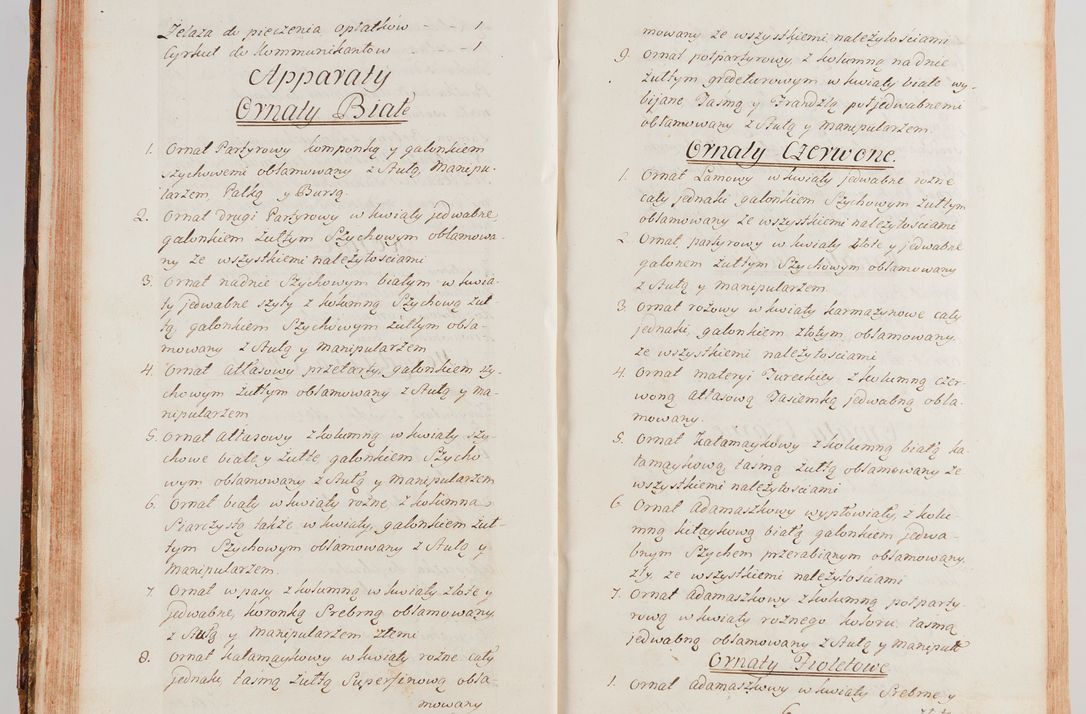 Żelaza do pieczenia opłatków - - - 1
Cyrkuł do kommunikantow - - 1
Apparaty
Ornaty Białe
1. Ornat Partyrowy komponką y galonkiem
szychowemi obłamowany z Stułą, Manipu-
larzem, Palką y Bursą.
2. Ornat drugi Partyrowy w kwiaty jedwabne,
galonkiem żułtym Szychowym obłamowa-
ny ze wszystkiemi należytościami
3. Ornat nadnie Szychowym białym w kwia-
ty jedwabne szyty z kolumną Szychową żuł
tą, galonkiem Szychowym żułtym obła-
mowany z Stułą y Manipularzem
4. Ornat atłasowy przetarty, galonkiem szy-
chowym żułtym obłamowany z Stułą y Ma-
nipularzem
5. Ornat Atłasowy z kolumną w kwiaty szy-
chowe białe y żułte, galonkiem Szycho
wym obłamowany z Stułą y Manipularzem
6. Ornat biały w kwiaty rożne, z kolumną
Starczystą także w kwiaty, galonkiem żuł-
tym Szychowym obłamowany z Stułą y
Manipularzem.
7. Ornat w pasy z kolumną w kwiaty złote y
jedwabne, koronką Srebrną obłamowany,
z Stułą y Manipularzem złemi
8. Ornat kałamaykowy w kwiaty rożne cały
jednaki, tasmą żułtą Superfinową obła-
mowany
mowany ze wszystkiemi należytościami
9. Ornat potpartyrowy z kolumną nadnie
żułtym grodeturowym w kwiaty białe wy-
bijane Tasmą y Frandzlą potjedwabnemi
obłamowany z Stułą y Manipularzem.
Ornaty Czerwone.
1. Ornat Lamowy w kwiaty jedwabne rożne
cały jednaki, galonkiem Szychowym żułtym
obłamowany ze wszystkiemi należytościami
2. Ornat, partyrowy w kwiaty złote y jedwabne
galonem żułtym Szychowym obłamowany
z Stułą y Manipularzem
3. Ornat rożowy w kwiaty karmazynowe cały
jednaki, galonkiem złotym, obłamowany,
ze wszystkiemi należytościami
4. Ornat materyi Tureckiey z kolumną czer-
woną atłasową Tasiemką jedwabną obła-
mowany.
5. Ornat Kałamaykowy z kolumną białą ka
łamaykową tasmą żułtą obłamowany ze
wszystkiemi należytościami
6. Ornat adamaszkowy wypłowiały, z kolu-
mną kitaykową białą galonkiem jedwa-
bnym Szychem przerabianym obłamowany,
zły, ze wszystkiemi należytościami
7. Ornat adamaszkowy z kolumną potparty-
rową w kwiaty rożnego koloru, tasmą
jedwabną obłamowany z Stułą y Manipuł
Ornaty Fioletowe
1. Ornat adamaszkowy w kwiaty Srebrne y